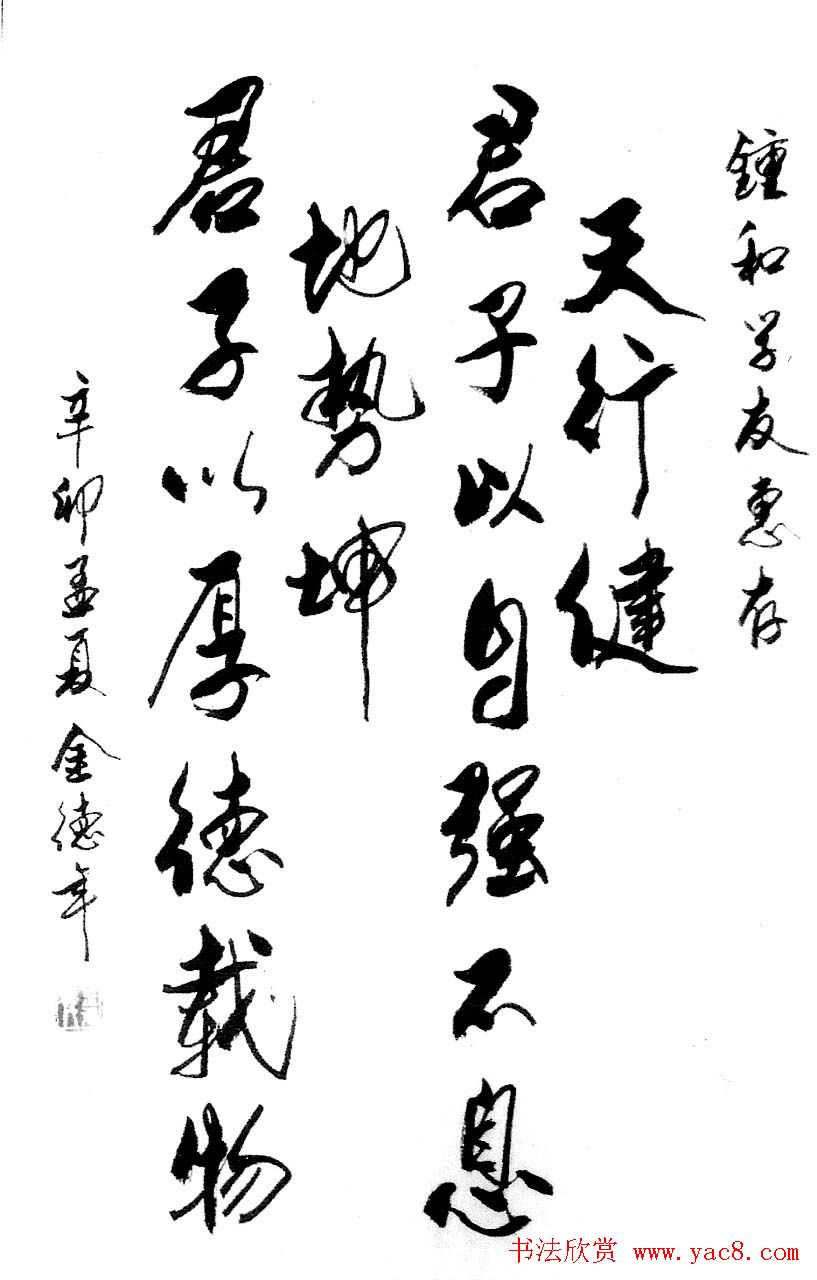 鍾和学友惠存
天行健
君子以自强不息
地势坤
君子以厚德载物
辛卯孟夏金德年
书法欣赏 www.yac8.com